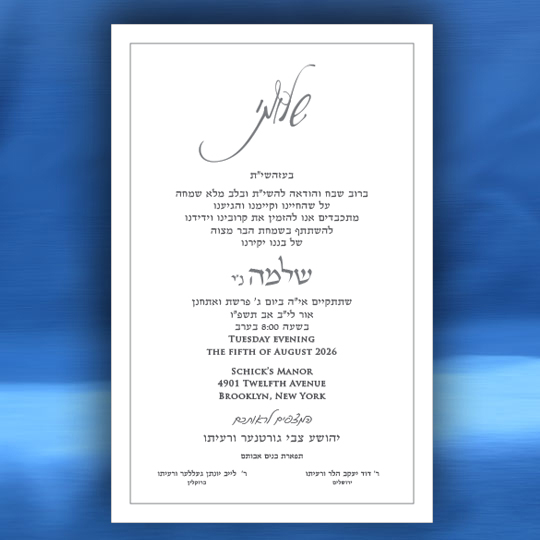 שלומי
בעזהשי"ת
ברוב שבח והודאה להשי"ת ובלב מלא שמחה
על שהחיינו וקיימנו והגיענו
מתכבדים אנו להזמין את קרובינו וידידנו
להשתתף בשמחת הבר מצוה
של בננו יקירנו
שלמה נ"י
שתתקיים אי"ה ביום ג' פרשת ואתחנן
אור לי"ב אב תשפ"ו
בשעה 8:00 בערב
Tuesday evening
the fifth of August 2026
Schick's Manor
4901 Twelfth Avenue
Brooklyn, New York
המצפים לראותכם
יהושע צבי גורטנער ורעיתו
תפארת בנים אבותם
ר' דוד יעקב הלר ורעיתו
ירושלים
ר' לייב יונתן געללער ורעיתו
ברוקלין